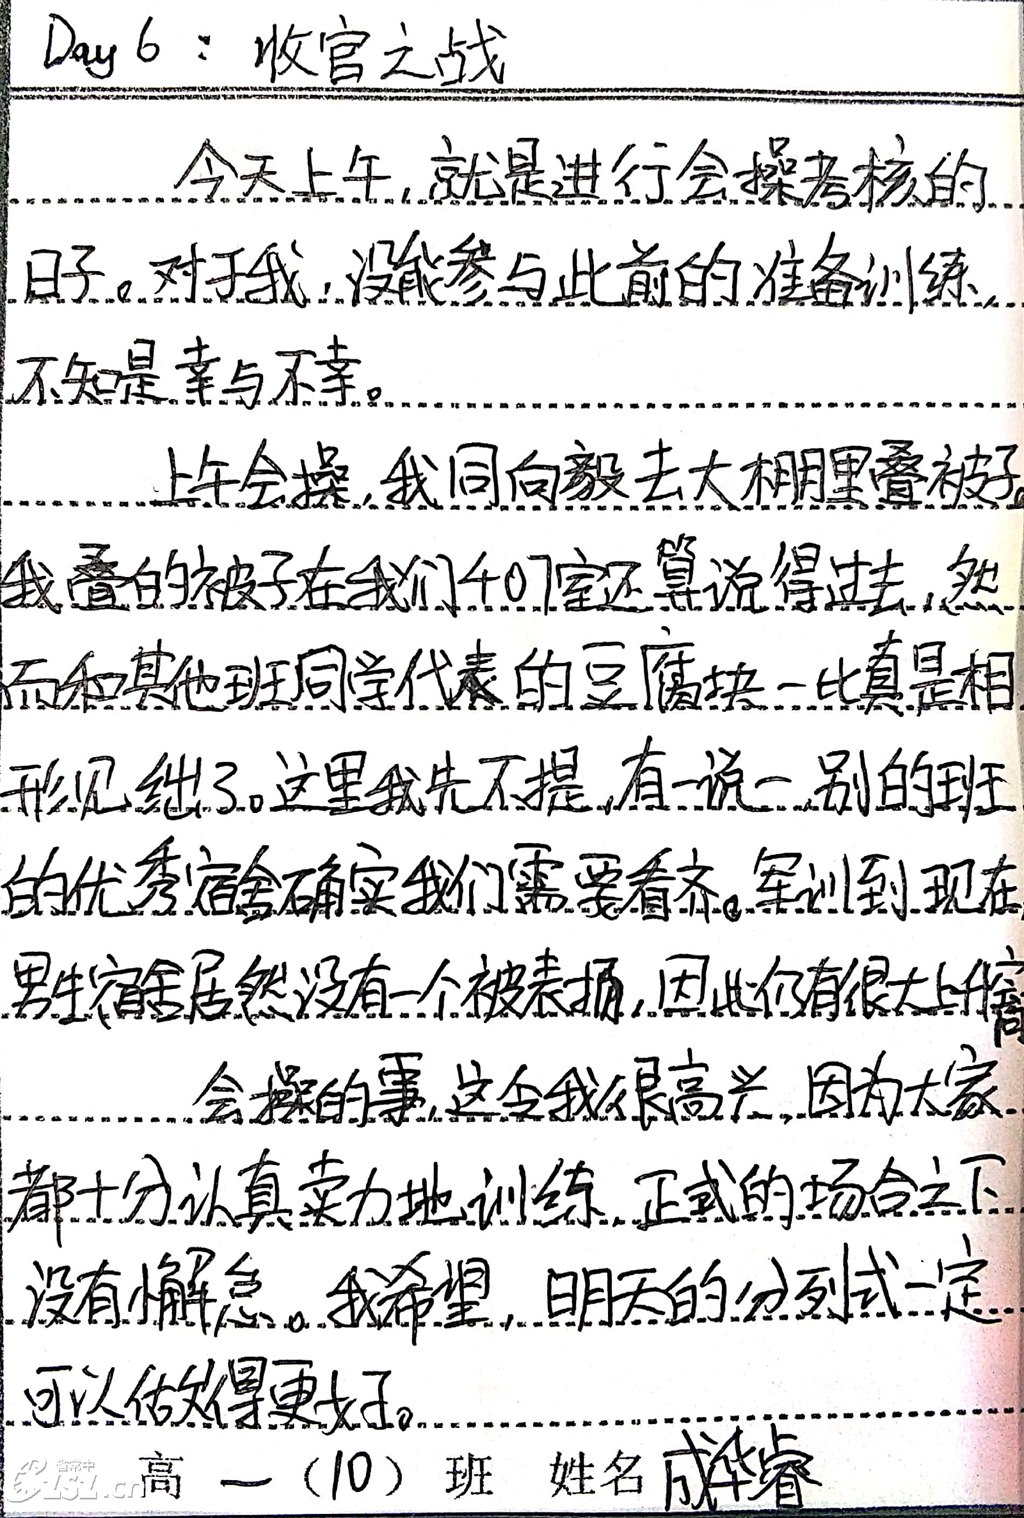 Day 6：收官之战
今天上午，就是进行会操考核的
日子。对于我，没能参与此前的准备训练，
不知是幸与不幸。
上午会操，我同向毅去大棚里叠被子。
我叠的被子在我们407室还算说得过去，然
而和其他班同学代表的豆腐块一比真是相
形见绌了。这里我先不提，有一说一，别的班
的优秀宿舍确实我们需要看齐。军训到现在，
男生宿舍居然没有一个被表扬，因此仍有很大上升空间
会操的事，这令我很高兴，因为大家
都十分认真卖力地训练，正式的场合之下
没有懈怠。我希望，明天的分列式一定
可以做得更好。
高一（10）班 姓名 成华睿
省常中
CZSZ.cn